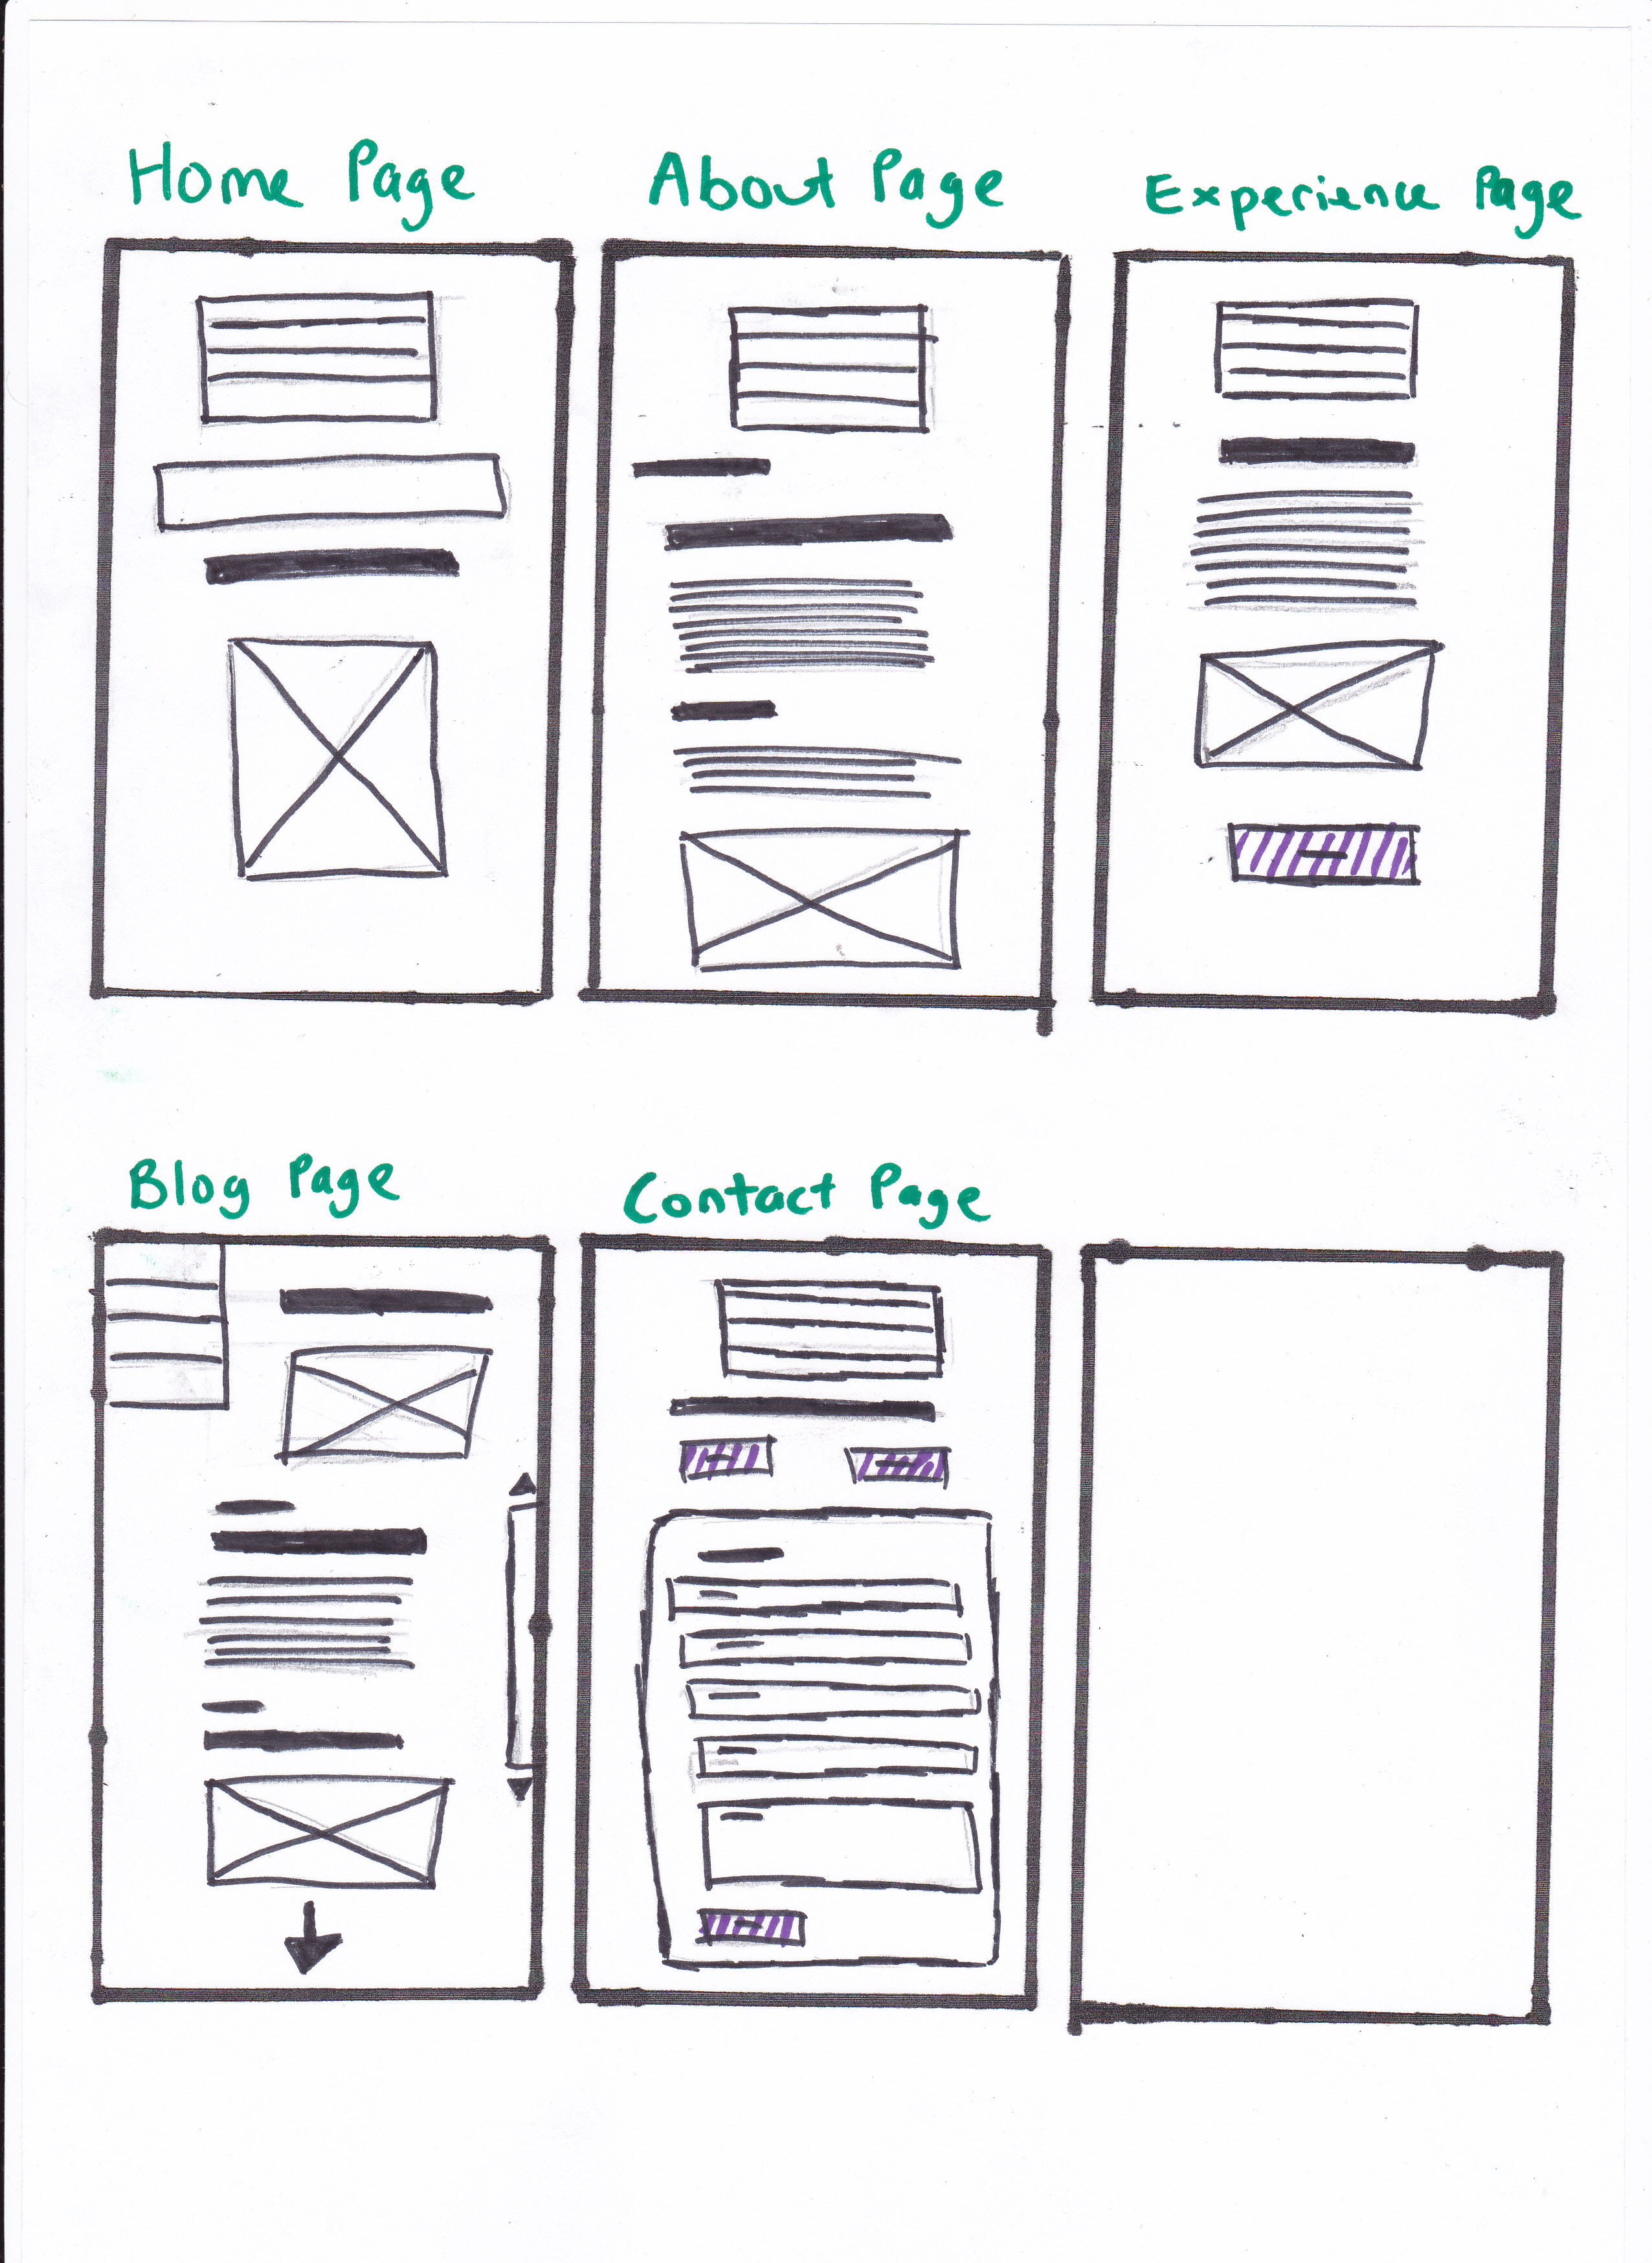 Home Page
About Page
Experience Page
Blog Page
Contact Page